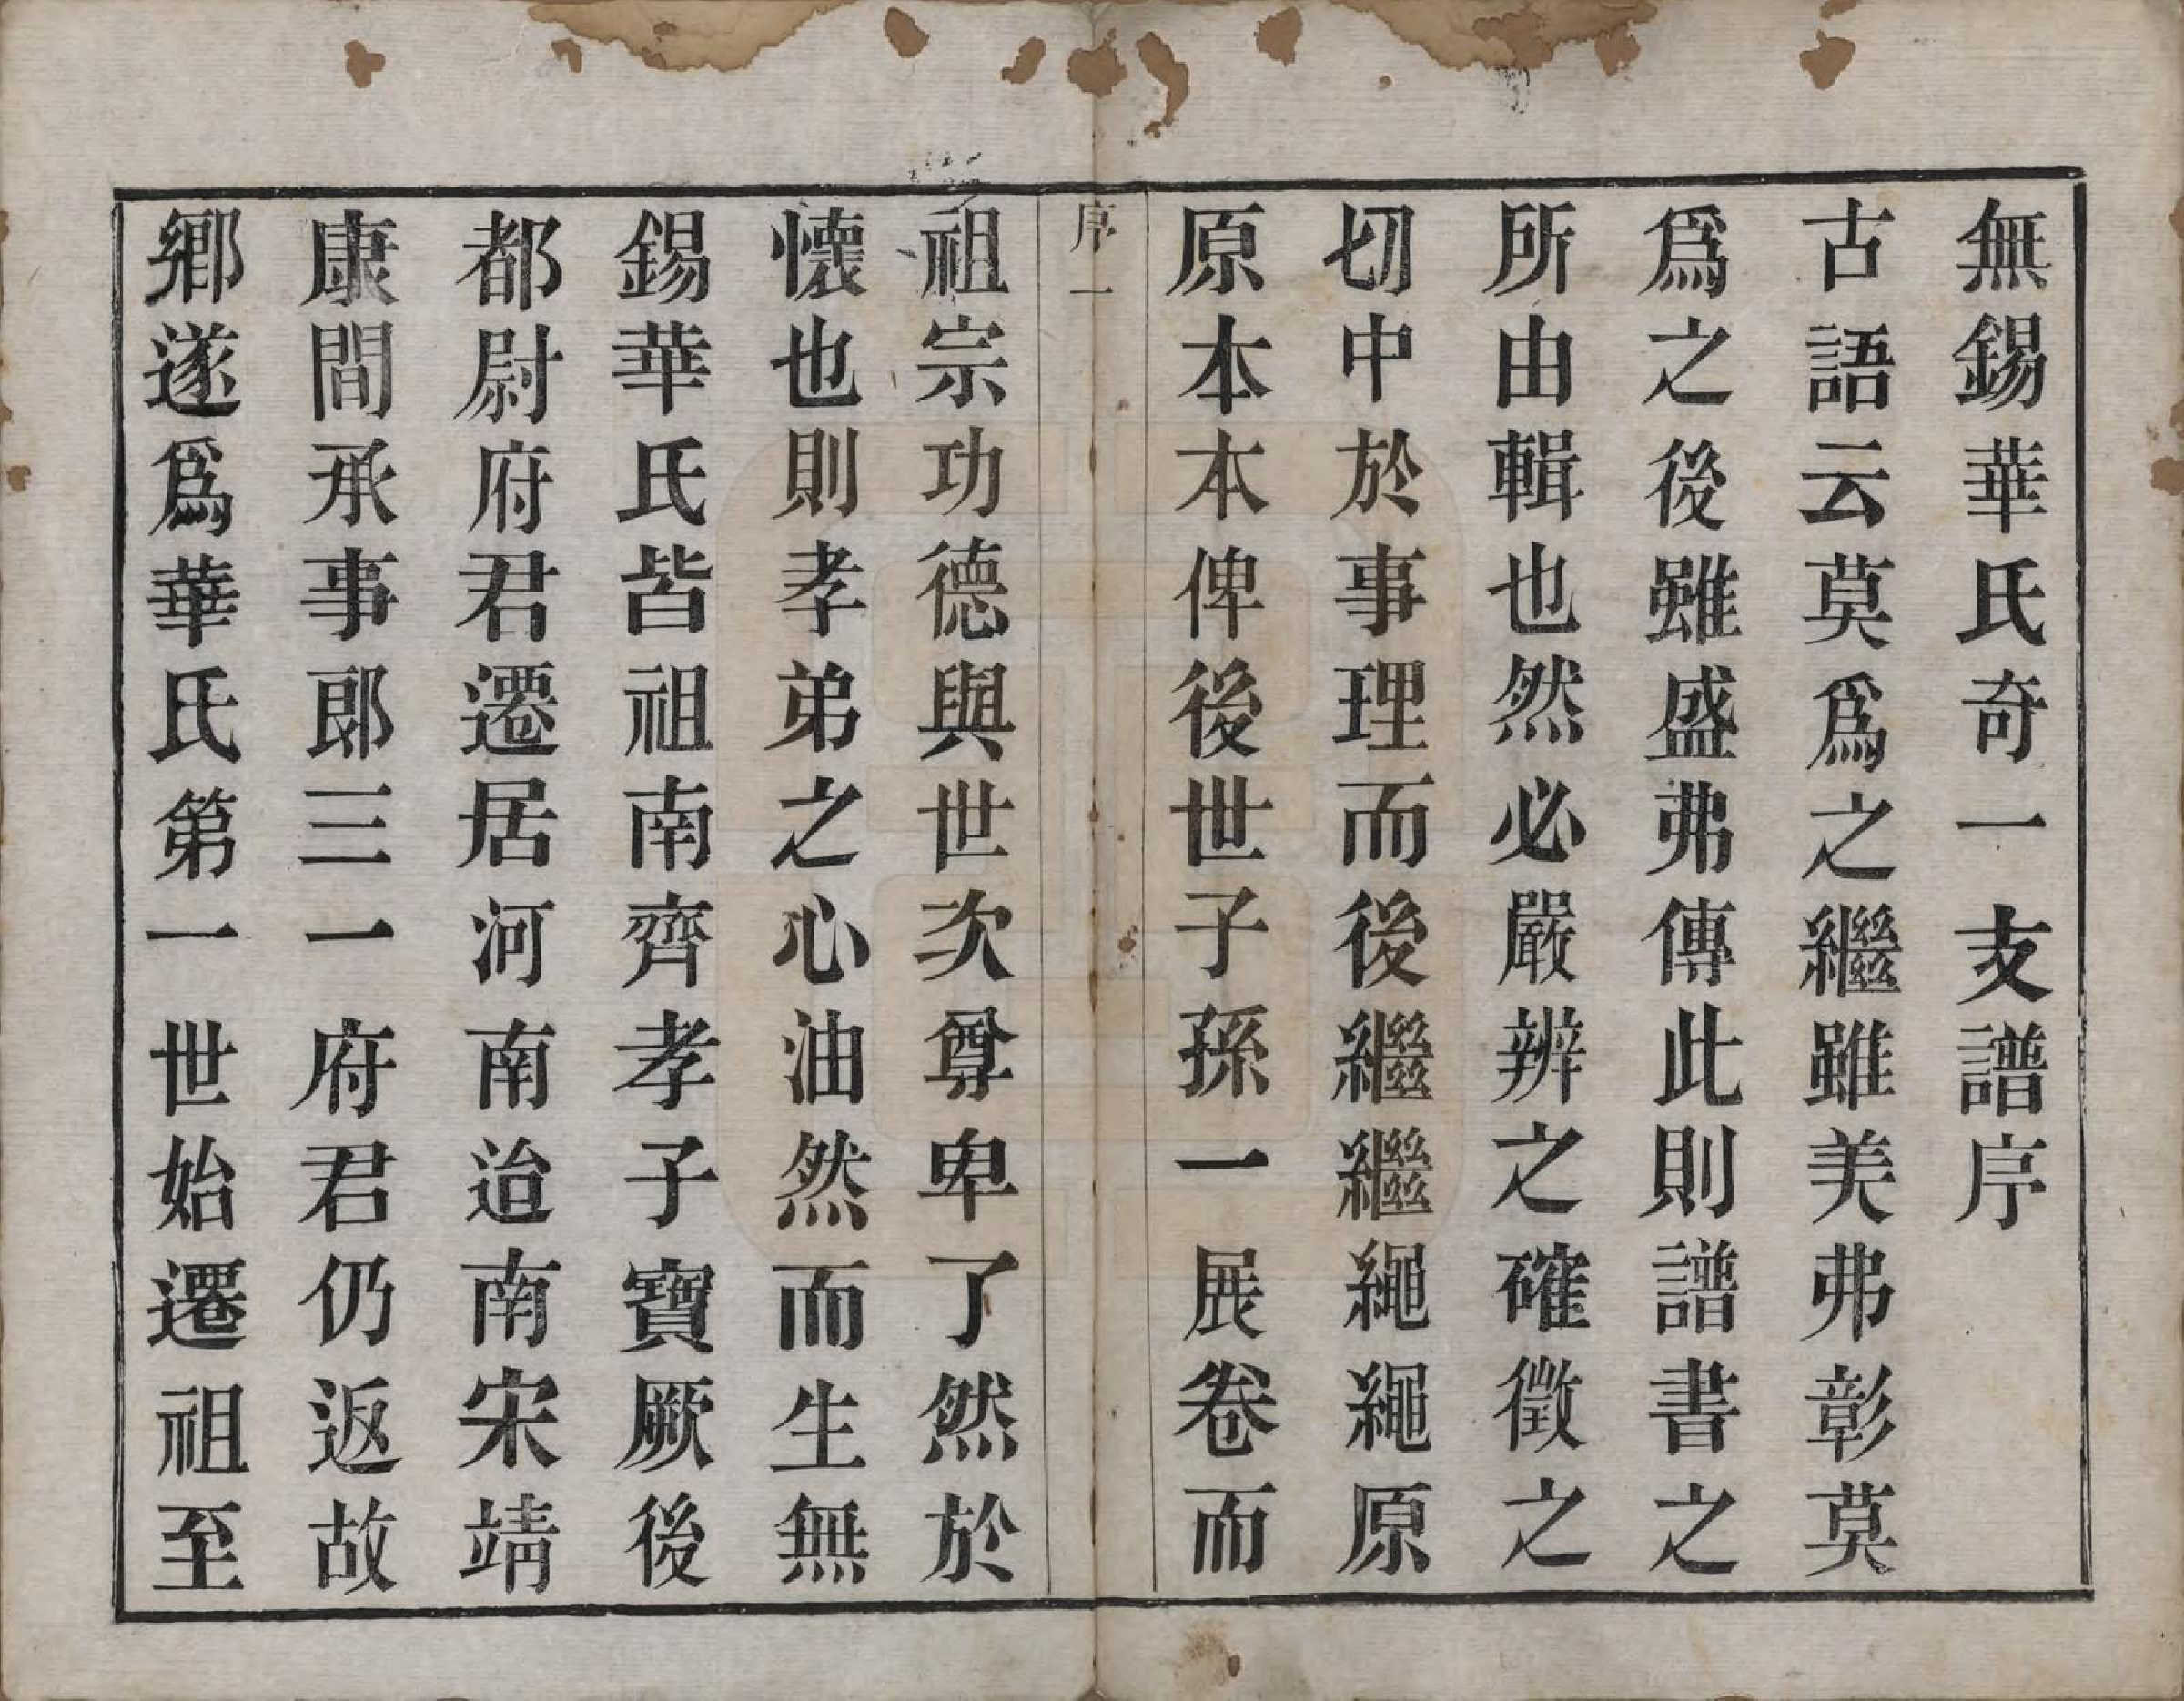 無錫華氏奇一支譜序
古語云莫爲之繼雖美弗彰莫
爲之後雖盛弗傳此則譜書之
所由輯也然必嚴辨之確徵之
切中於事理而後繼繼繩繩原
原本本俾後世子孫一展卷而
序一
祖宗功德與世次尊卑了然於
懷也則孝弟之心油然而生無
錫華氏皆祖南齊孝子寶厥後
都尉府君遷居河南迨南宋靖
康間承事郎三一府君仍返故
鄉遂爲華氏第一世始遷祖至